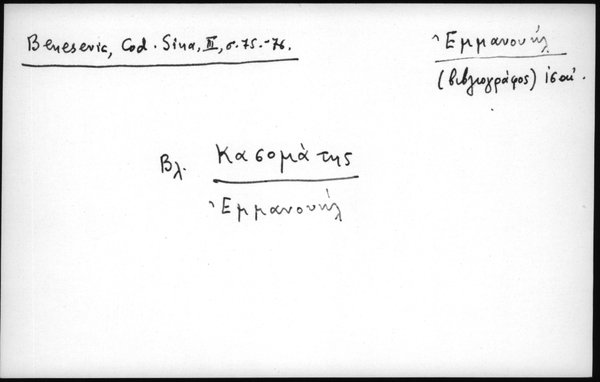 Benesevic, Cod. Sina, II, σ. 75.-76.
Ἐμμανουήλ
(βιβλιογράφος) ις αἰ.
Βλ. Κασομάτης
Ἐμμανουήλ